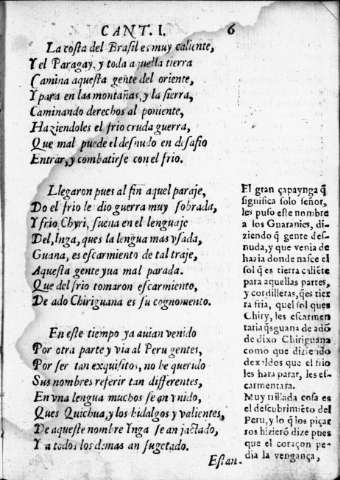 CANT. I. 6
La costa del Brasil es muy caliente,
Y el Paragay, y toda aquella tierra
Camina aquesta gente del oriente,
Y para en las montañas, y la sierra,
Caminando derechos al poniente,
Haziendoles el frio cruda guerra,
Que mal puede el desnudo en desafio
Entrar, y combatirse con el frio.
Llegaron pues al fin aquel paraje,
Do el frio le dio guerra muy sobrada,
Y frio Chyri, suena en el lenguaje
Del, Inga, ques la lengua mas vsada,
Guana, es escarmiento de tal traje,
Aquesta gente yua mal parada.
Que del frio tomaron escarmiento,
De ado Chiriguana es su cognomento.
En este tiempo ya auian venido
Por otra parte y via al Peru gentes,
Por ser tan exquisitos, no he querido
Sus nombres referir tan differentes,
En vna lengua muchos se an vnido,
Ques Quichua, y los hidalgos y valientes,
De aqueste nombre Ynga se an jactado,
Y a todos los demas an sugetado.
El gran çapaynga q̃
significa solo señor,
les puso este nombre
a los Guaranies, di-
ziendo q̃ gente des-
nuda, y que venia de
hazia donde nasce el
sol q̃ es tierra caliēte
para aquellas partes,
y cordilleras, q̃es tier
ra fria, quel sol ques
Chiry, les escarmen
taria q̃s guana de adō
de dixo Chiriguana
como que diziendo
dexaldos que el frio
les hara parar, les es-
carmentara.
Muy niflada cosa es
el descubrimiēto del
Peru, y lo q̃ los piçar
ros hizierō dize pues
que el coraçon pe-
dia la vengança,
Estan-